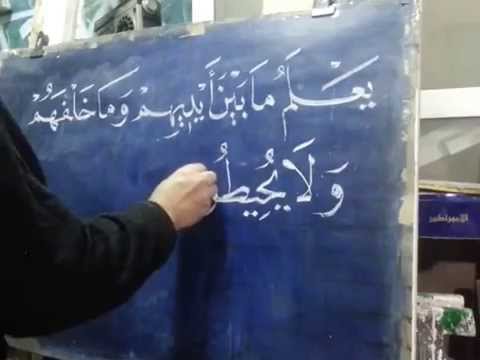 يَعْلَمُ مَا بَيْنَ أَيْدِيهِمْ وَمَا خَلْفَهُمْ
وَلَا يُحِيطُ